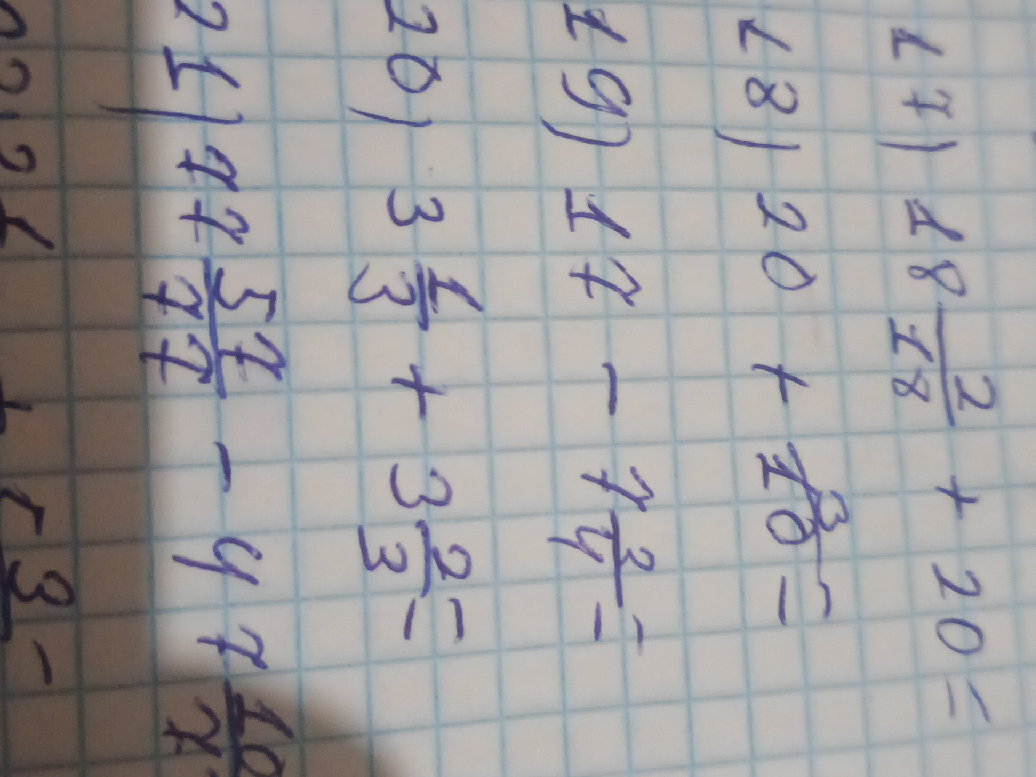 17) 18 2/18 + 20 =
18) 20 + 3/10 =
19) 17 - 7 3/4 =
20) 3 1/3 + 3 2/3 =
21) 77 57/77 - 47 10/7